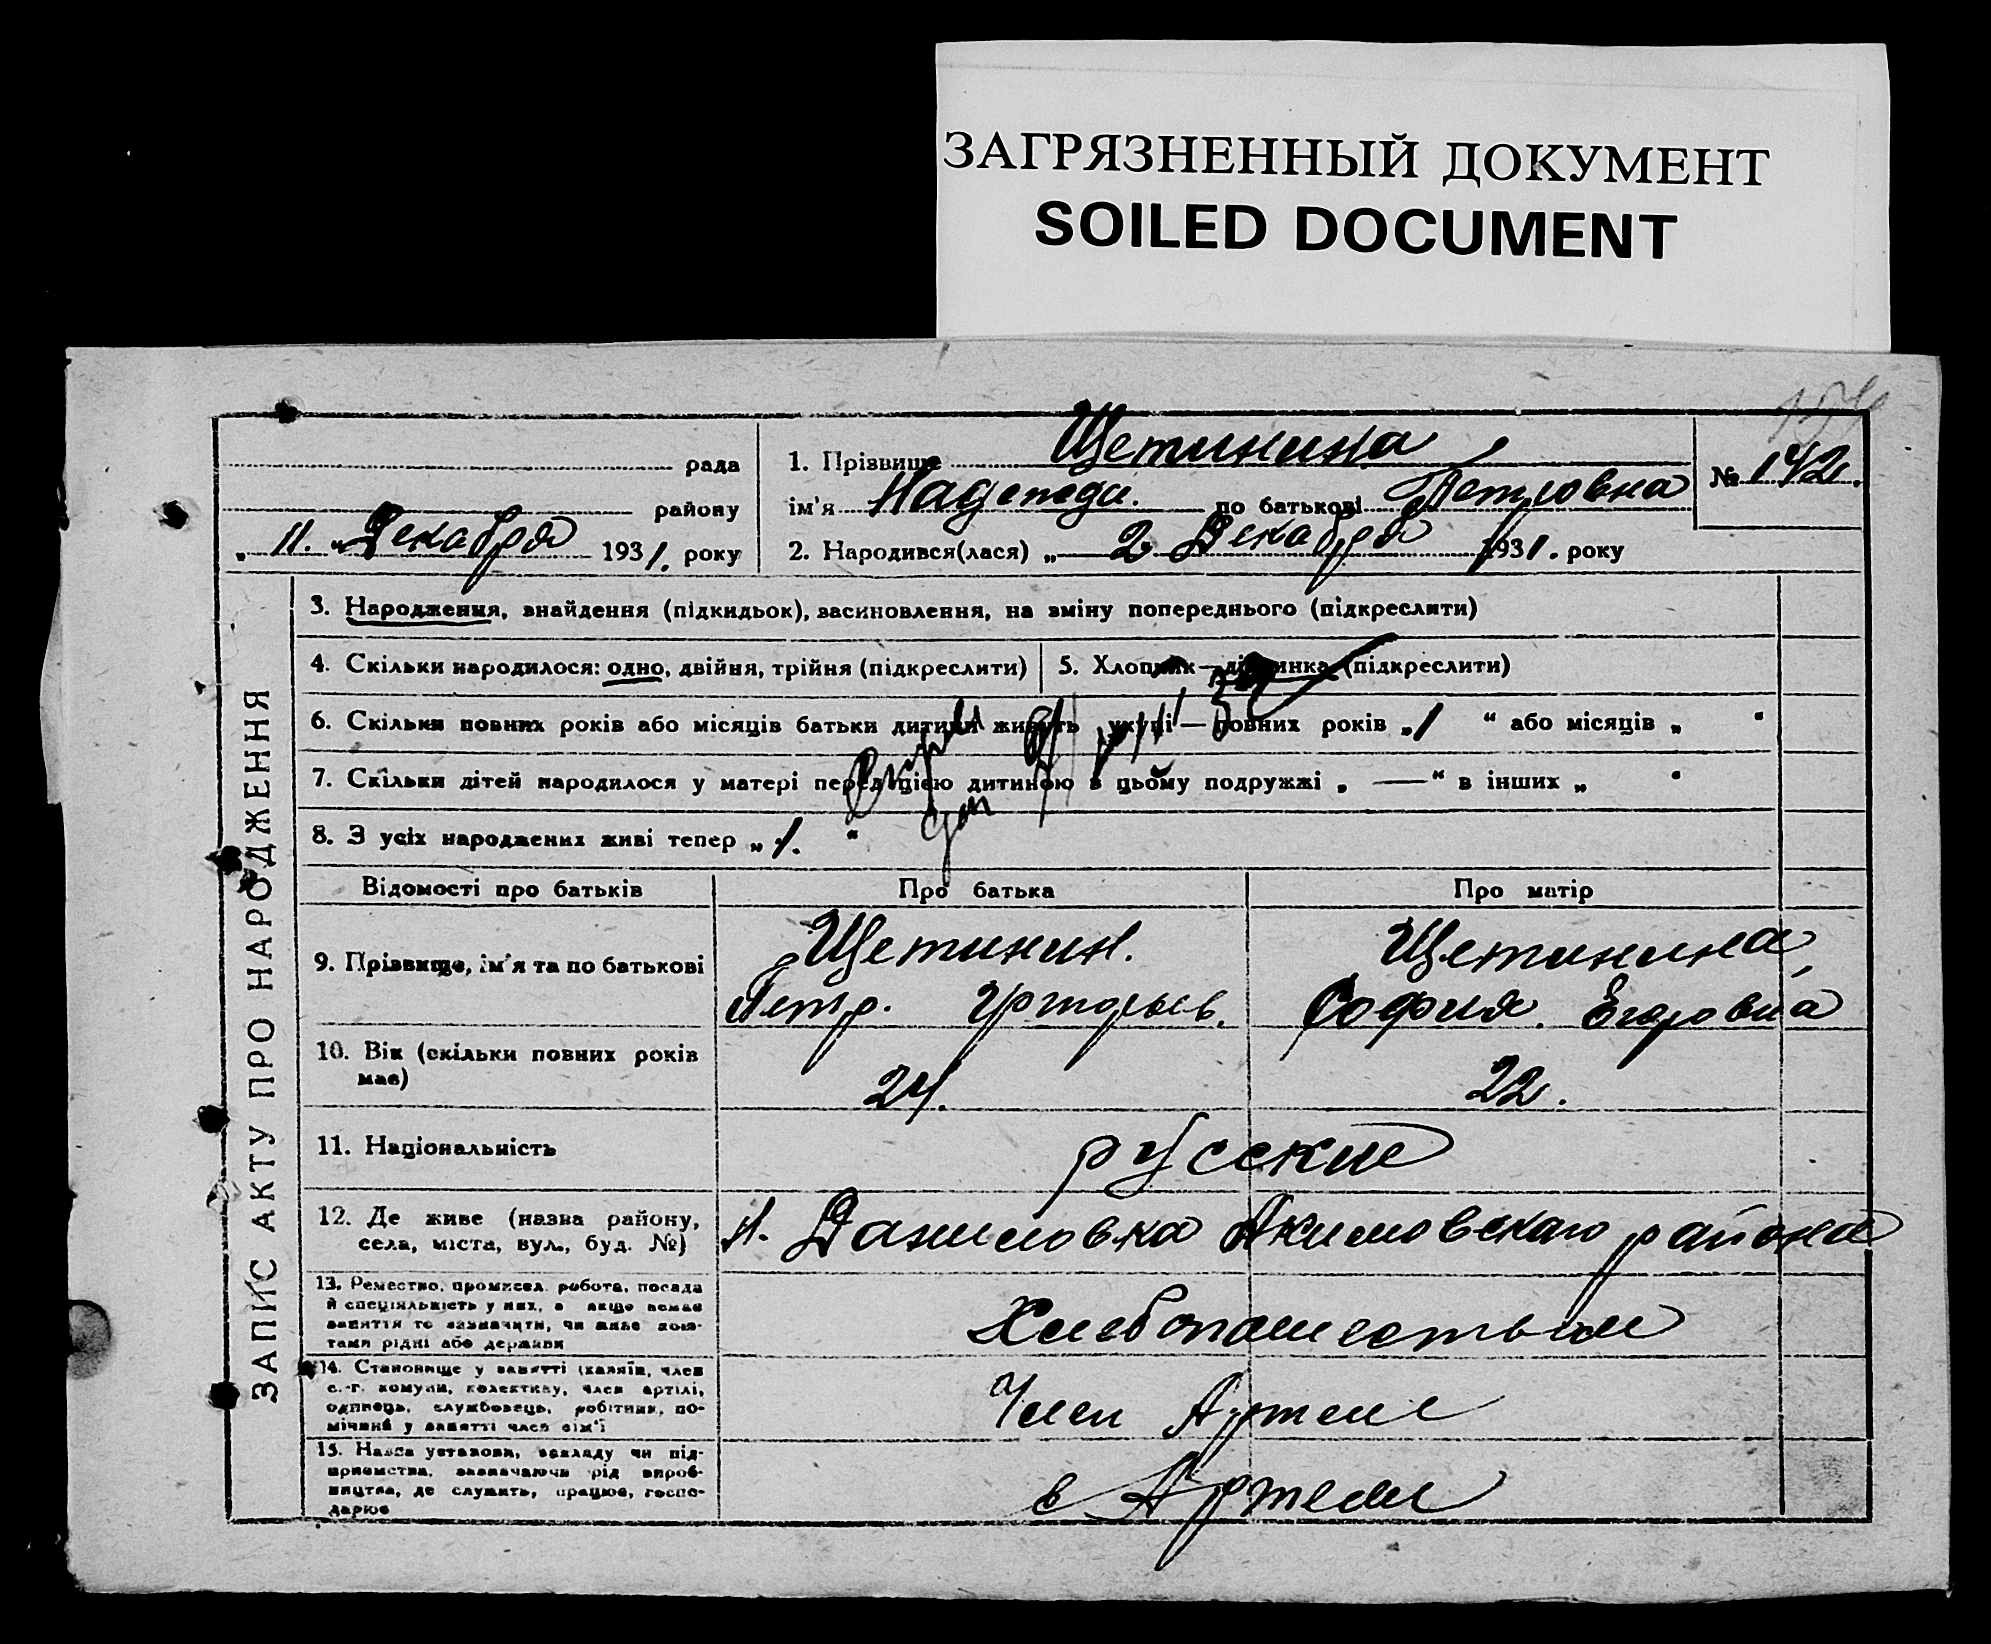 ЗАГРЯЗНЕННЫЙ ДОКУМЕНТ
SOILED DOCUMENT
ЗАПИС АКТУ ПРО НАРОДЖЕННЯ
рада
району
„ 11. " Декабря 1931. року
1. Прізвище Щетинина
ім'я Надежда. по батькові Петровна
№ 142.
2. Народився(лася) „ 2 Декабря 1931. року
3. Народження, знайдення (підкидьок), засиновлення, на зміну попереднього (підкреслити)
4. Скільки народилося: одно, двійня, трійня (підкреслити)
5. Хлопчик — дівчинка (підкреслити)
6. Скільки повних років або місяців батьки дитини живуть укупі — повних років „ 1 " або місяців „ "
7. Скільки дітей народилося у матері перед цією дитиною в цьому подружжі „ — " в інших „ "
8. З усіх народжених живі тепер „ 1. "
Відомості про батьків
Про батька
Про матір
9. Прізвище, ім'я та по батькові
Щетинин.
Петр. Григорьев.
Щетинина,
София. Егоровна
10. Вік (скільки повних років
має)
24.
22.
11. Національність
русские
12. Де живе (назва району,
села, міста, вул., буд. №)
Даниловка Акимовскаго района
13. Ремество, промисел, робота, посада
й спеціяльність у них, а якщо немає
заняття то зазначити, чи живе кош-
тами рідні або держави
Хлебопашеством
14. Становище у занятті (хазяїн, член
с.-г. комуни, колективу, член артілі,
одинець, службовець, робітник, по-
мічний у занятті член сім'ї
Член Артели
15. Назва установи, закладу чи під-
приємства, зазначаючи рід вироб-
ництва, де служить, працює, госпо-
дарює
в Артели